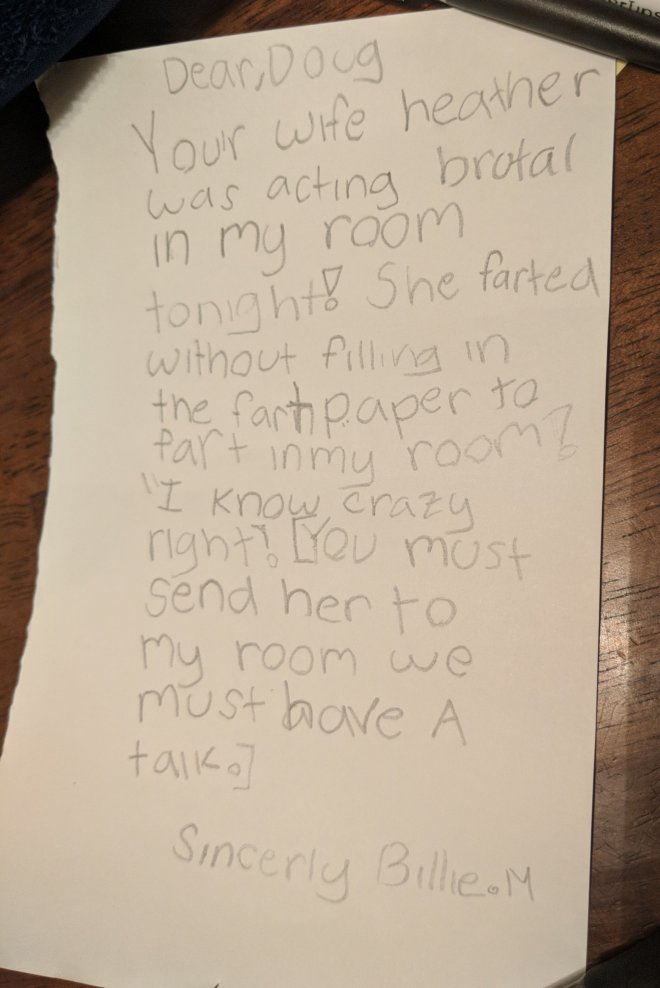 Dear, Doug
Your wife heather
was acting brutal
in my room
tonight! She farted
without filling in
the fart paper to
fart in my room!
"I know crazy
right! [You must
send her to
my room we
must have A
talk.]
Sincerly Billie.M